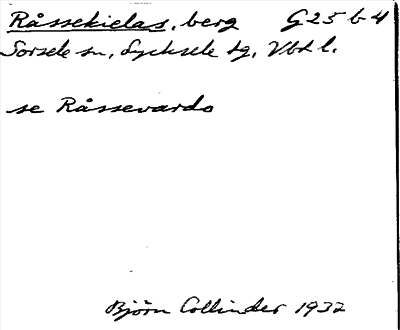 Råssekielas, berg G 25 b 4
Sorsele sn, Lycksele tg, Vbt l.
se Råssevardo
Björn Collinder 1932